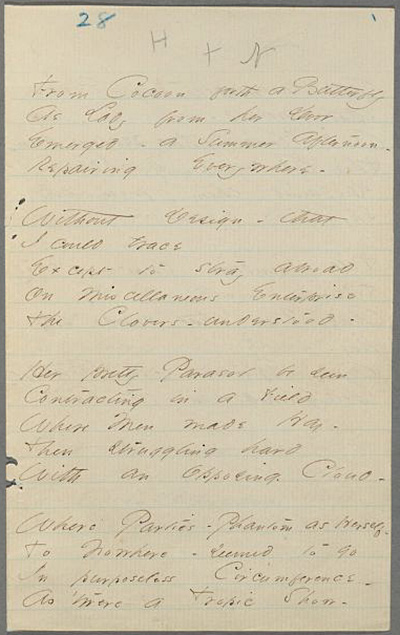 28
H + N
From Cocoon forth a Butterfly
As Lady from her Door
Emerged - a Summer Afternoon -
Repairing Everywhere -
Without Design - that
I could trace
Except to stray abroad
On miscellaneous Enterprise
The Clovers - understood -
Her pretty Parasol be seen
Contracting in a Field
Where Men made Hay -
Then struggling hard
With an opposing Cloud -
Where Parties - Phantom as Herself -
To Nowhere - seemed to go
In purposeless Circumference -
As 'twere a Tropic Show -